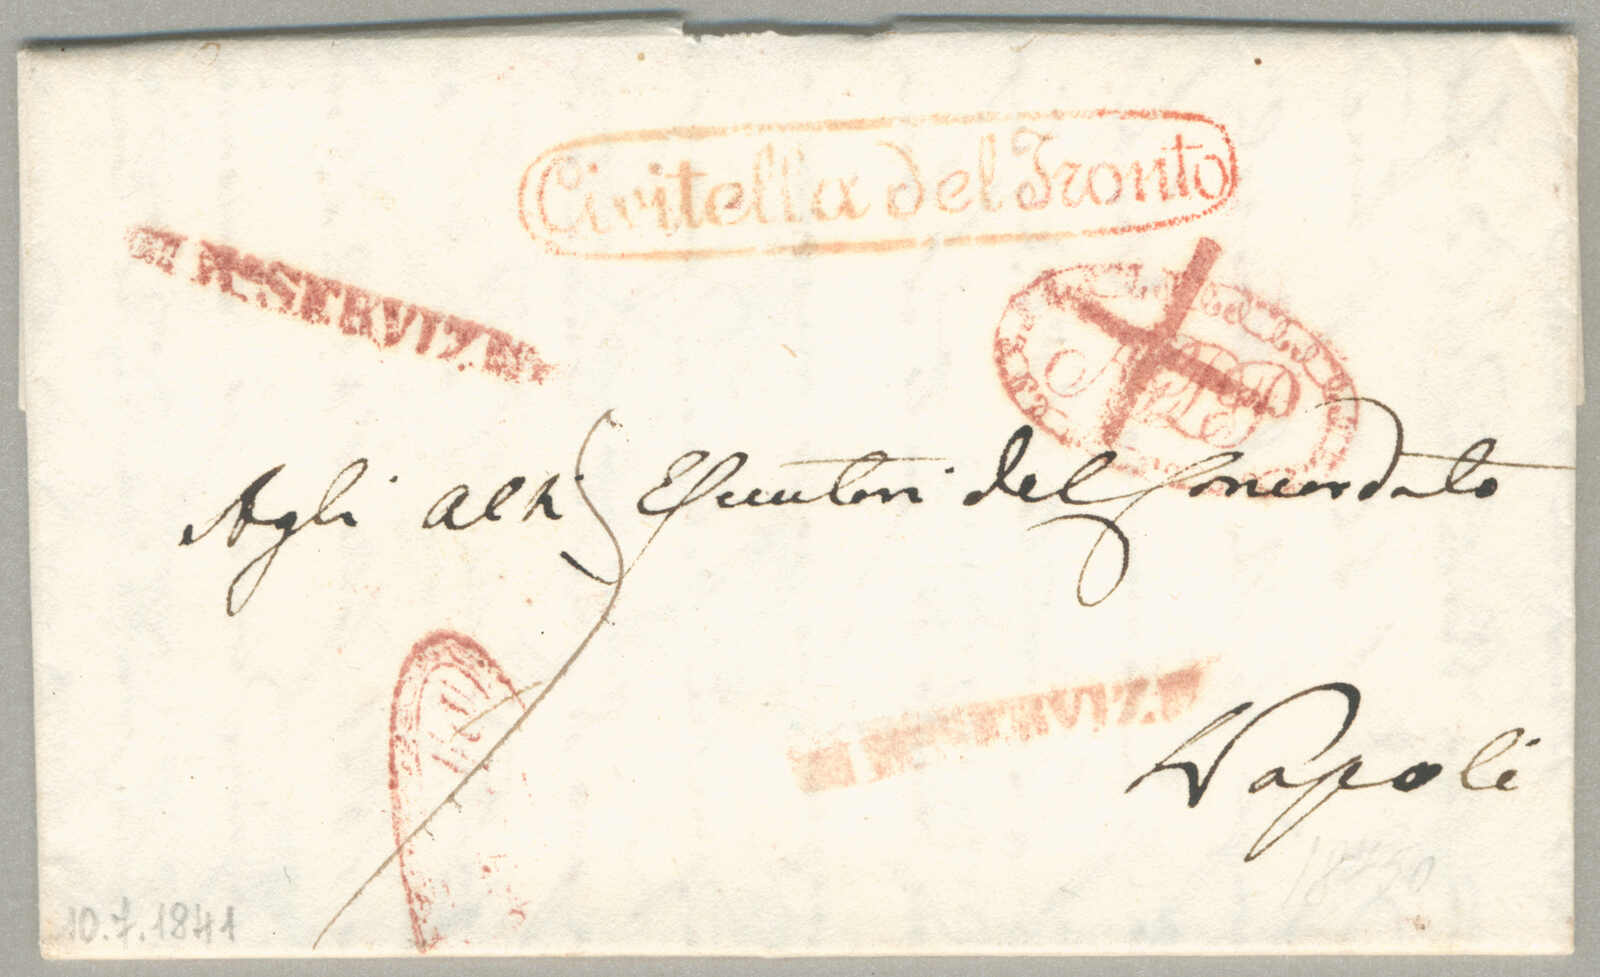 Civitella del Tronto
Rl SERVIZ.
Agli Alti Esecutori del Concordato
Rl SERVIZ.
Napoli
10.7.1841